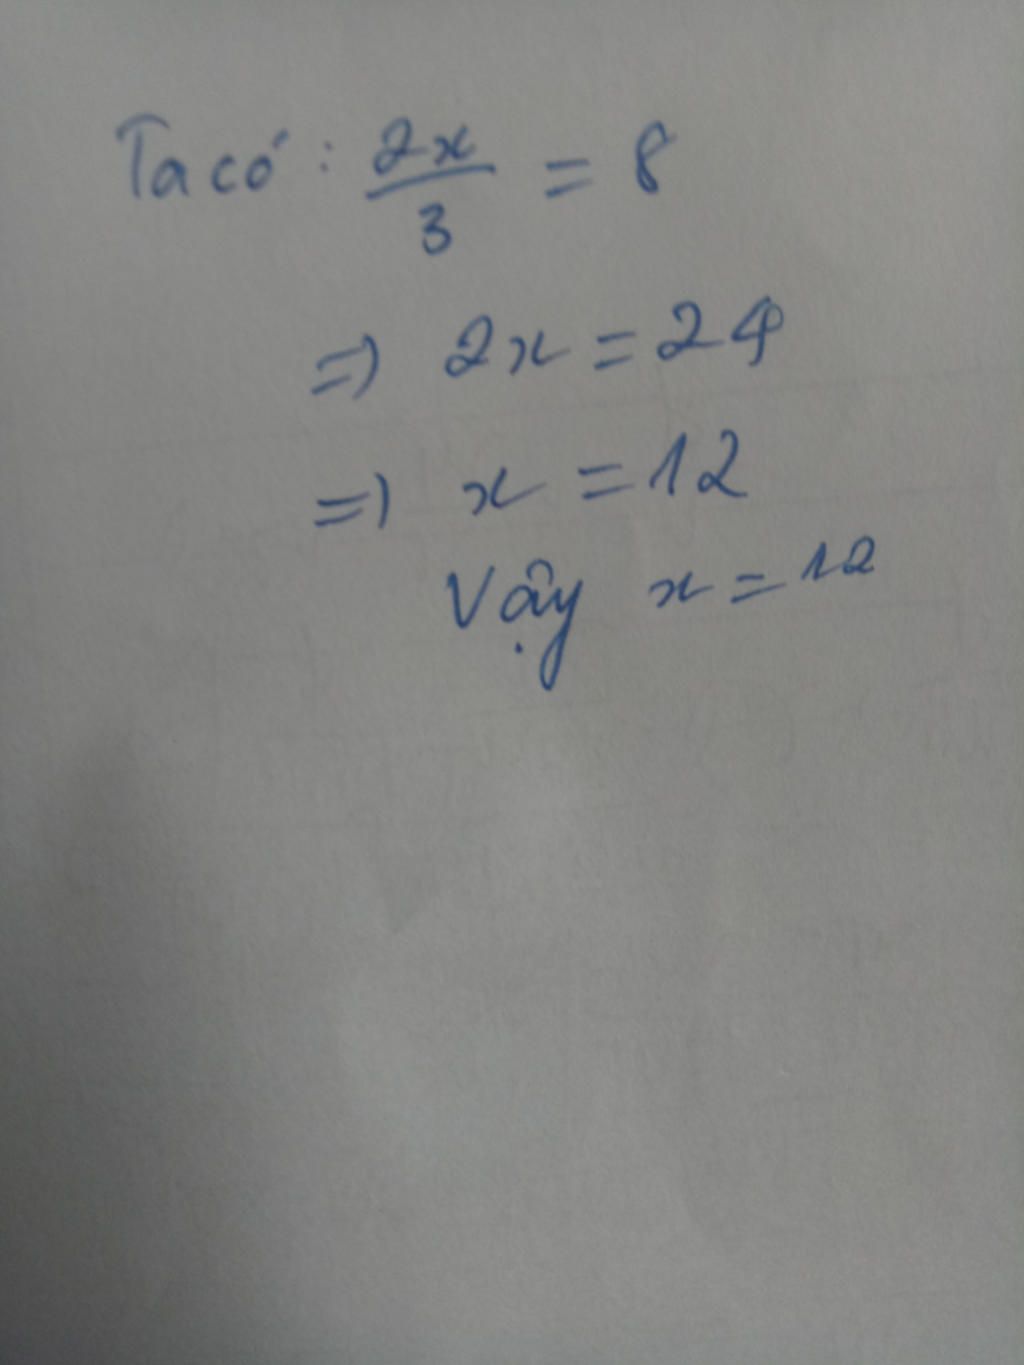 Ta có: 2x/3 = 8
=) 2x = 24
=) x = 12
Vậy x = 12